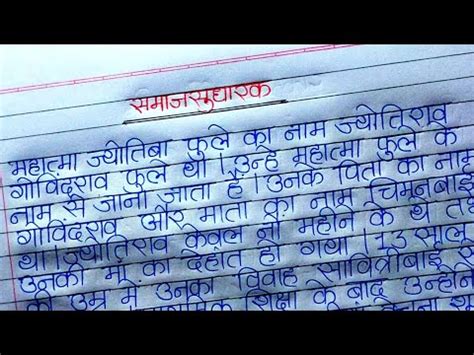 समाजसुधारक
महात्मा ज्योतिबा फुले का नाम ज्योतिराव
गोविंदराव फुले था। उन्हे महात्मा फुले के
नाम से जाना जाता है। उनके पिता का नाम
गोविंदराव और माता का नाम चिमनबाई
था। ज्योतिराव केवल नौ महीने के थे तब
उनकी माँ का देहांत हो गया। 13 साल
की उम्र में उनका विवाह सावित्रीबाई से
शिक्षा के बाद उन्होंने